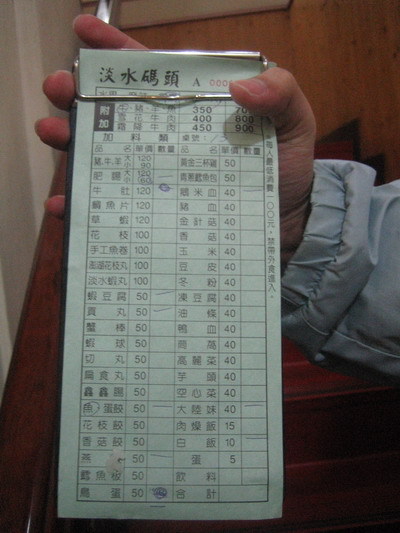 淡水碼頭 A
附加 牛.豬.羊 350
雪花牛肉 400 800
霜降牛肉 450 900
加料類 桌號:
品名 單價 數量 品名 單價 數量
豬.牛.羊 大 120 小 90 黃金三杯雞 50
肥腸 大 120 小 60 50
牛肚 120 糯米血 40
鯛魚片 120 豬血 40
草蝦 120 金針菇 40
花枝 100 香菇 40
手工魚卷 100 玉米 40
100 豆皮 40
淡水蝦丸 100 冬粉 40
蝦豆腐 50 凍豆腐 40
貢丸 50 油條 40
蟹棒 50 鴨血 40
蝦球 50 40
切丸 50 高麗菜 40
扁食丸 50 芋頭 40
鑫鑫腸 50 空心菜 40
魚蛋餃 50 大陸妹 40
花枝餃 50 肉燥飯 15
香菇餃 50 白飯 10
燕 50 蛋 5
鱈魚板 50 飲料
鳥蛋 50 合計
每人最低消費一00元,禁帶外食進入。